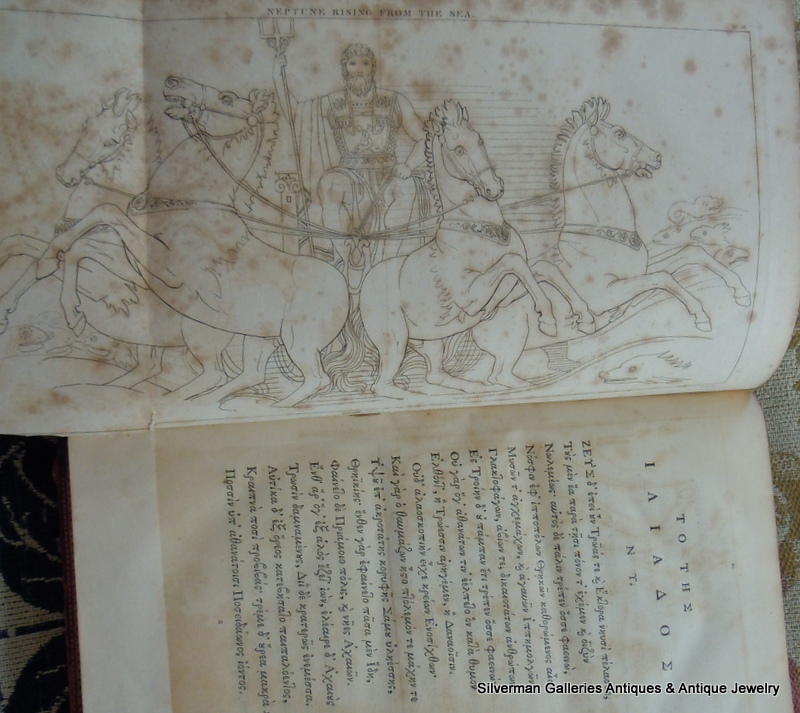 NEPTUNE RISING FROM THE SEA.
ΤΟ ΤΗΣ
ΙΛΙΑΔΟΣ
Ν.
ΖΕΥΣ δ᾽ ἐπεὶ ἦν Τρῶάς τε καὶ Ἕκτορα νηυσὶ πέλασσε,
Τοὺς μὲν ἔα παρὰ τῇσι πόνον τ᾽ ἐχέμεν καὶ ὀϊζὺν
Νωλεμέως· αὐτὸς δὲ πάλιν τρέπεν ὄσσε φαεινώ,
Νόσφιν ἐφ᾽ ἱπποπόλων Θρῃκῶν καθορώμενος αἶαν
Μυσῶν τ᾽ ἀγχεμάχων, καὶ ἀγαυῶν Ἱππημολγῶν,
Γλακτοφάγων, ἀβίων τε, δικαιοτάτων ἀνθρώπων.
Ἐς Τροίην δ᾽ οὐ πάμπαν ἔτι τρέπεν ὄσσε φαεινώ·
Οὐ γὰρ ὅγ᾽ ἀθανάτων τιν᾽ ἐέλπετο ὃν κατὰ θυμὸν
Ἐλθόντ᾽, ἢ Τρώεσσιν ἀρηγέμεν, ἢ Δαναοῖσιν.
Οὐδ᾽ ἀλαοσκοπιὴν εἶχε κρείων Ἐνοσίχθων·
Καὶ γὰρ ὁ θαυμάζων ἧστο πτόλεμόν τε μάχην τε
Ὑψοῦ ἐπ᾽ ἀκροτάτης κορυφῆς Σάμου ὑληέσσης,
Θρηϊκίης· ἔνθεν γὰρ ἐφαίνετο πᾶσα μὲν Ἴδη,
Φαίνετο δὲ Πριάμοιο πόλις, καὶ νῆες Ἀχαιῶν.
Ἔνθ᾽ ἄρ᾽ ὅγ᾽ ἐξ ἁλὸς ἕζετ᾽ ἰὼν, ἐλέαιρε δ᾽ Ἀχαιοὺς
Τρωσὶν δαμναμένους, Διῒ δὲ κρατερῶς ἐνεμέσσα.
Αὐτίκα δ᾽ ἐξ ὄρεος κατεβήσετο παιπαλόεντος,
Κραιπνὰ ποσὶ προβιβάς· τρέμε δ᾽ οὔρεα μακρὰ
Ποσσὶν ὑπ᾽ ἀθανάτοισι Ποσειδάωνος ἰόντος.
Silverman Galleries Antiques & Antique Jewelry